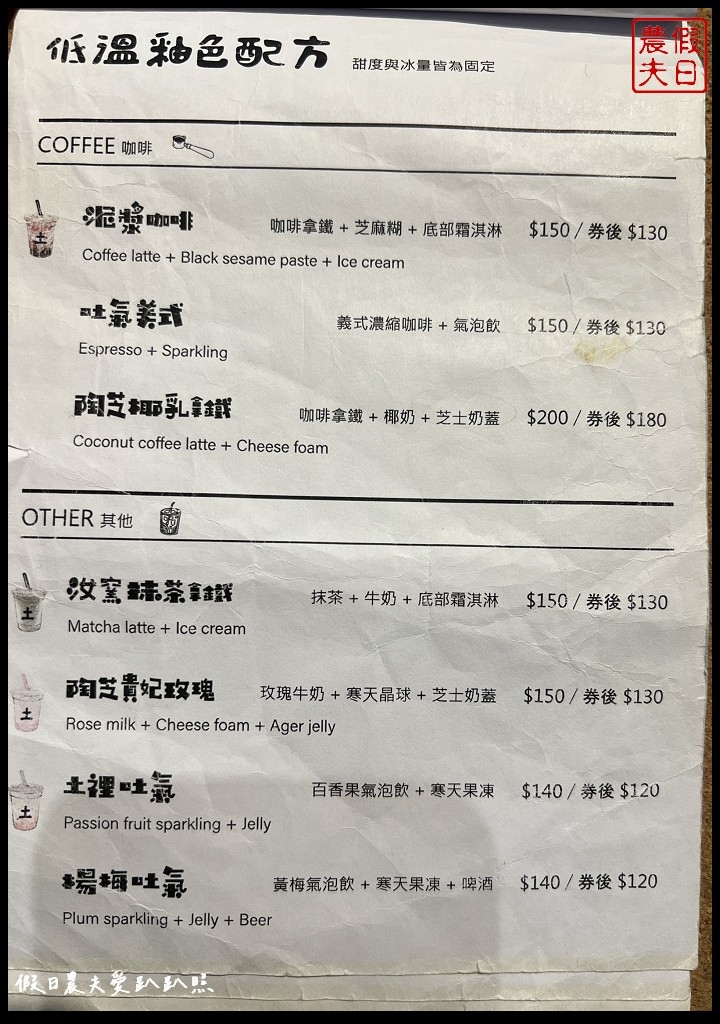 低溫釉色配方 甜度與冰量皆為固定
假日
農夫
COFFEE 咖啡
泥漿咖啡 咖啡拿鐵 + 芝麻糊 + 底部霜淇淋 $150 / 券後 $130
Coffee latte + Black sesame paste + Ice cream
吐氣美式 義式濃縮咖啡 + 氣泡飲 $150 / 券後 $130
Espresso + Sparkling
陶芝椰乳拿鐵 咖啡拿鐵 + 椰奶 + 芝士奶蓋 $200 / 券後 $180
Coconut coffee latte + Cheese foam
OTHER 其他
汝窯抹茶拿鐵 抹茶 + 牛奶 + 底部霜淇淋 $150 / 券後 $130
土
Matcha latte + Ice cream
陶芝貴妃玫瑰 玫瑰牛奶 + 寒天晶球 + 芝士奶蓋 $150 / 券後 $130
土
Rose milk + Cheese foam + Ager jelly
土裡吐氣 百香果氣泡飲 + 寒天果凍 $140 / 券後 $120
土
Passion fruit sparkling + Jelly
楊梅吐氣 黃梅氣泡飲 + 寒天果凍 + 啤酒 $140 / 券後 $120
Plum sparkling + Jelly + Beer
假日農夫愛趴趴照